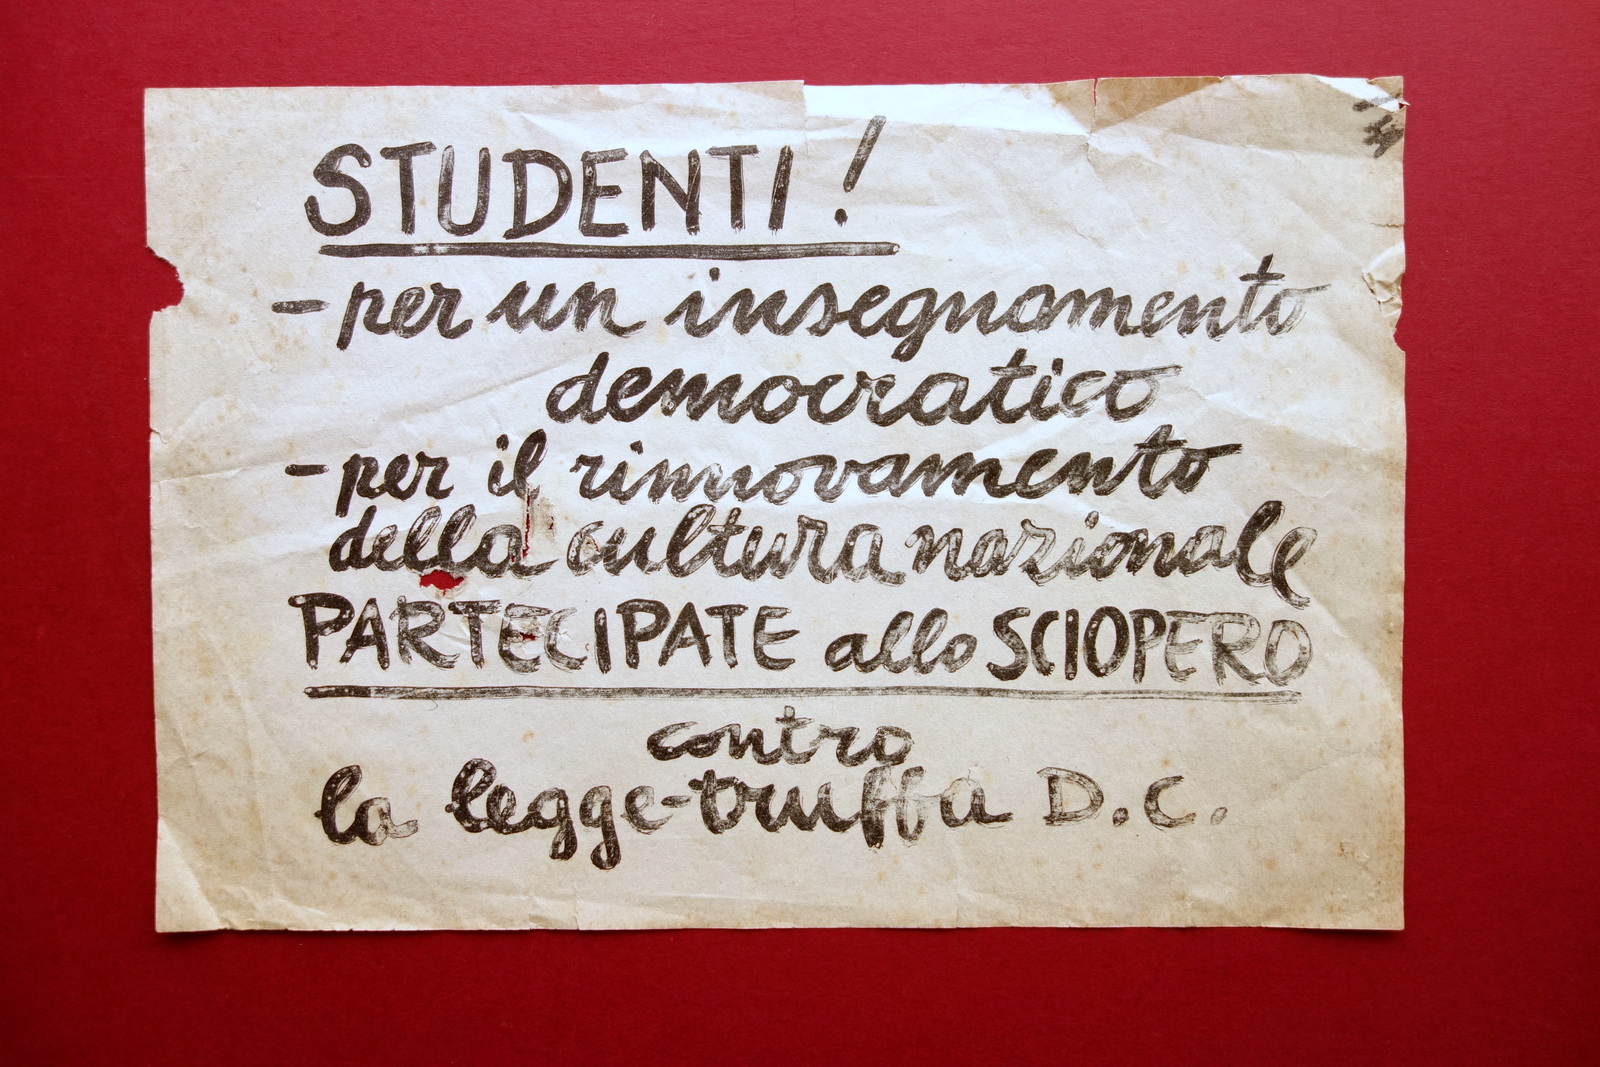 STUDENTI!
- per un insegnamento
democratico
- per il rinnovamento
della cultura nazionale
PARTECIPATE allo SCIOPERO
contro
la legge-truffa D.C.